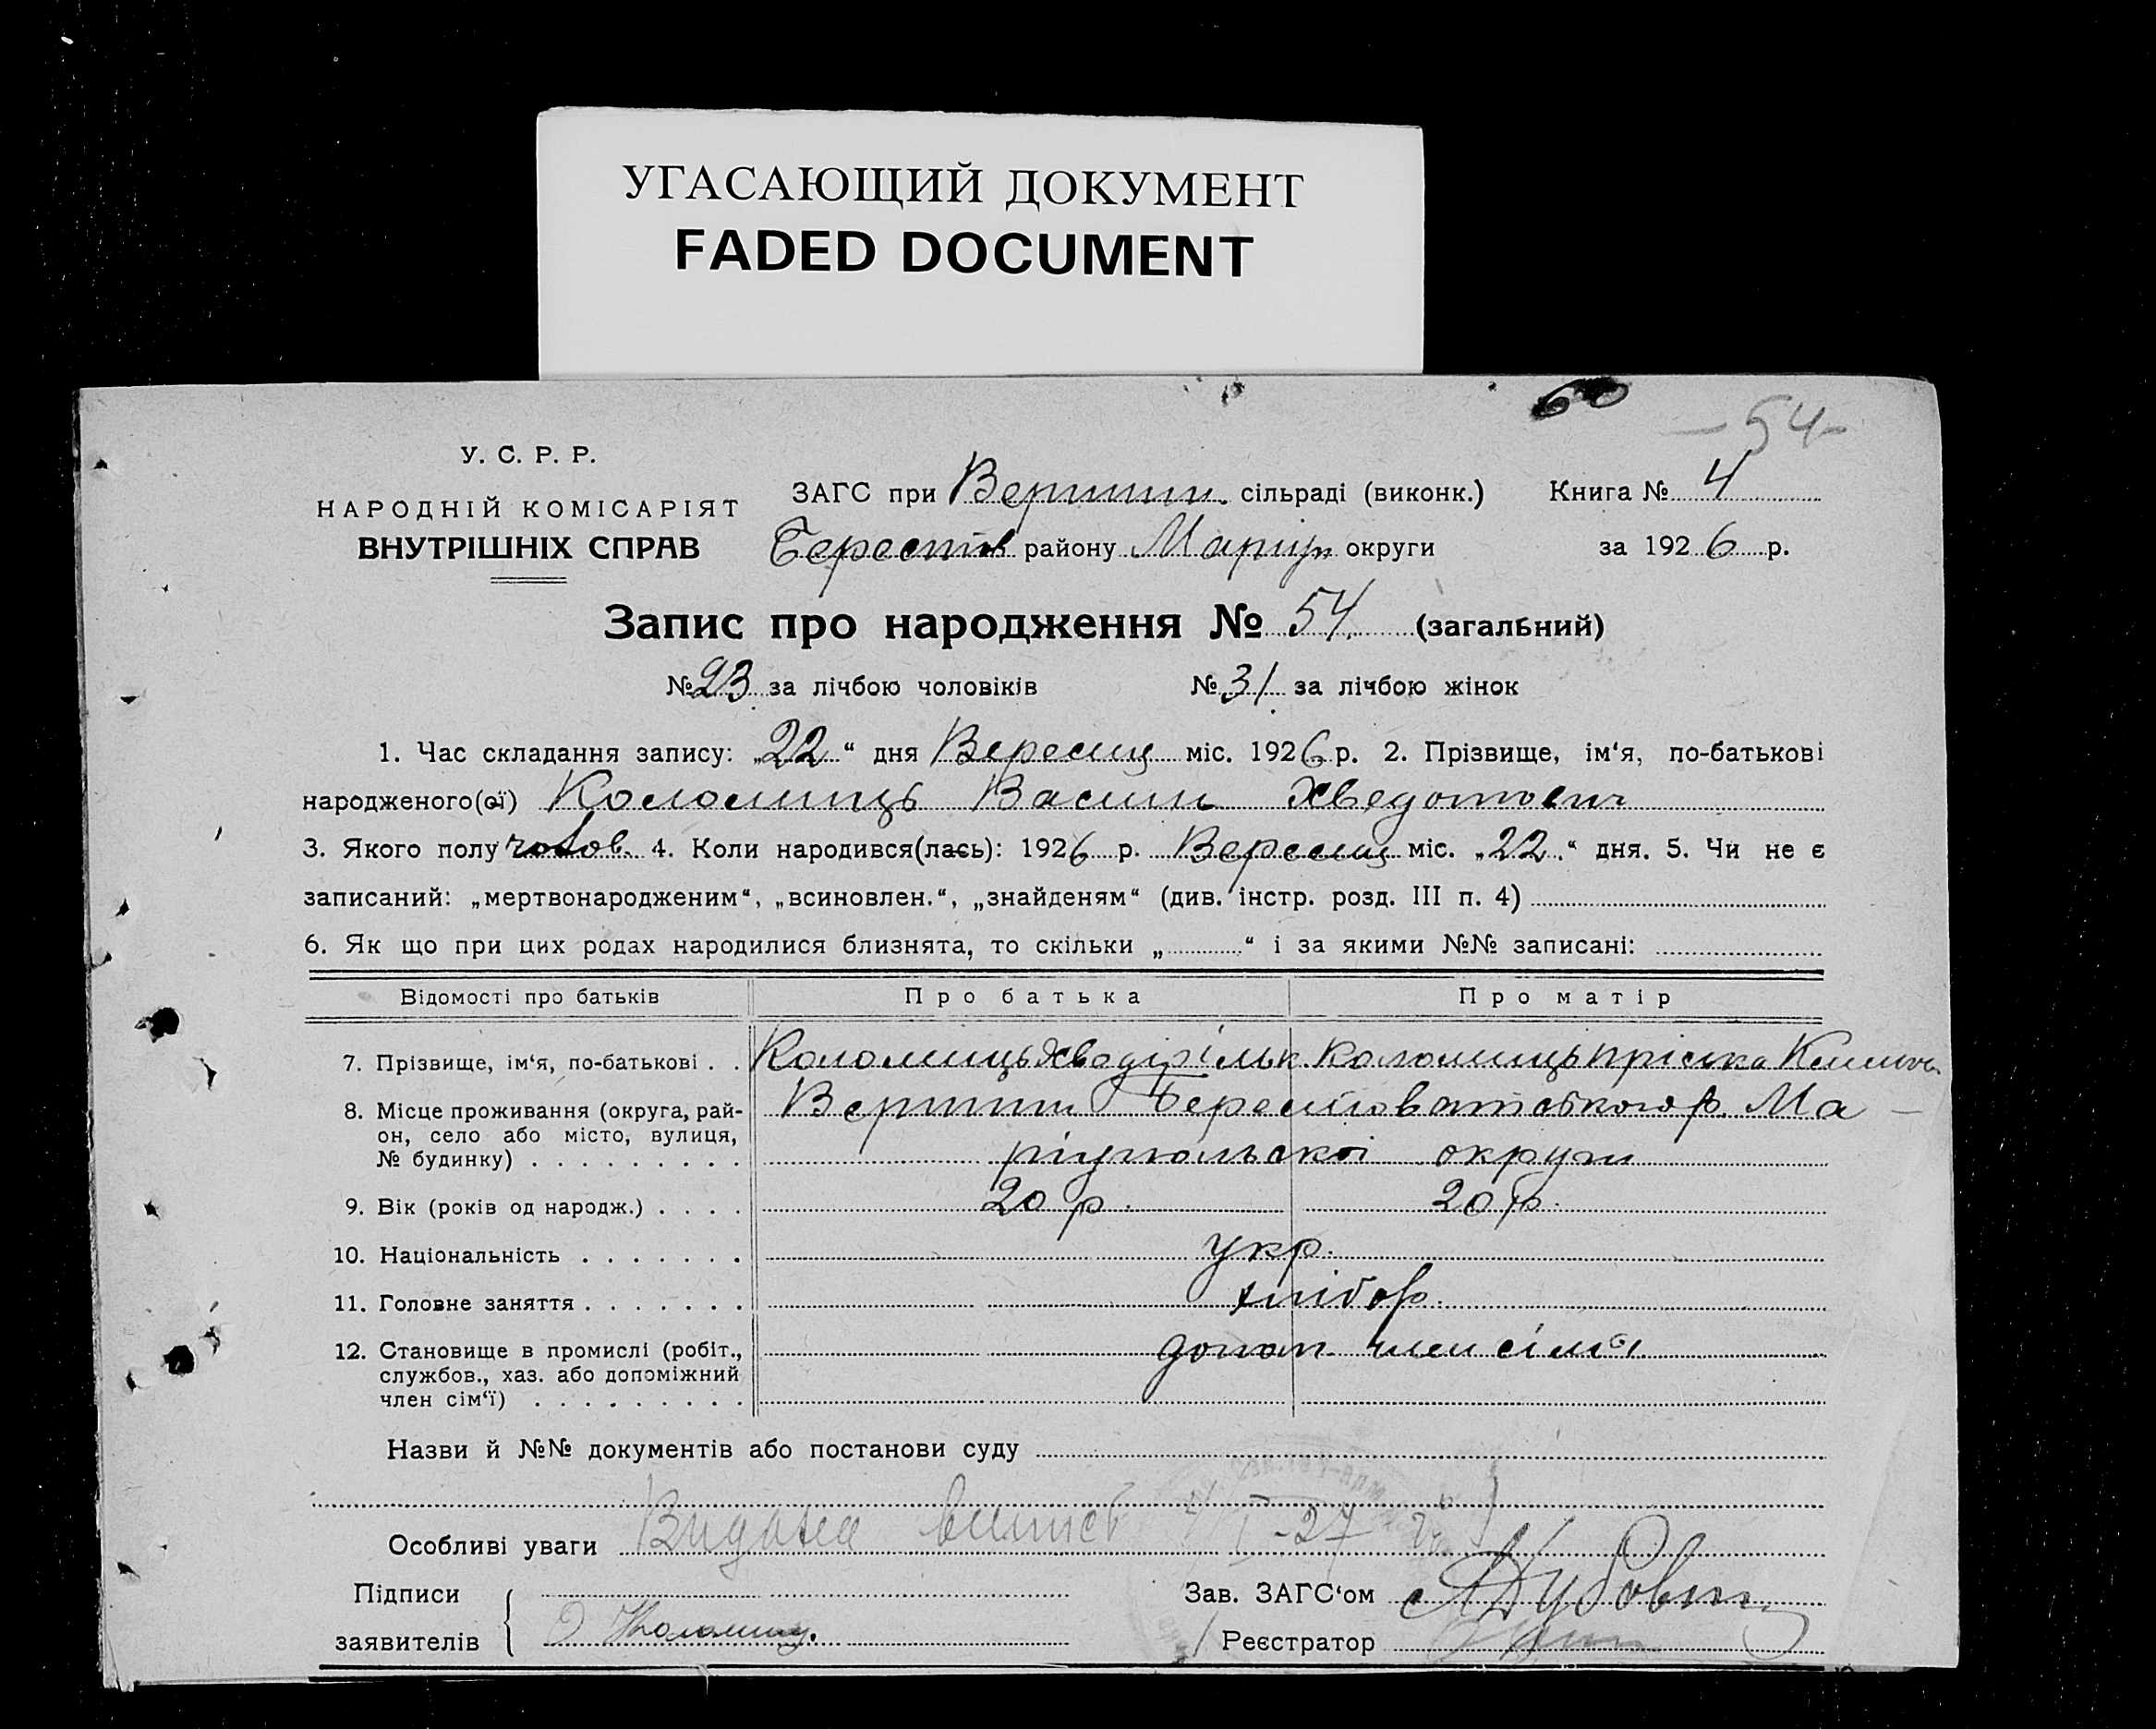 УГАСАЮЩИЙ ДОКУМЕНТ
FADED DOCUMENT
60
— 54 —
У. С. Р. Р.
НАРОДНІЙ КОМІСАРІЯТ
ВНУТРІШНІХ СПРАВ
ЗАГС при Вершин. сільраді (виконк.) Книга № 4
Берестів району Маріуп округи за 1926 р.
Запис про народження № 54 (загальний)
№ 23 за лічбою чоловіків № 31 за лічбою жінок
1. Час складання запису: „22“ дня Вересня міс. 1926 р. 2. Прізвище, ім‘я, по-батькові
народженого(ої) Коломиць Васил Хведотович
3. Якого полу чолов. 4. Коли народився(лась): 1926 р. Вересня міс. „22“ дня. 5. Чи не є
записаний: „мертвонародженим“, „всиновлен.“, „знайденям“ (див. інстр. розд. III п. 4)
6. Як що при цих родах народилися близнята, то скільки „ “ і за якими №№ записані:
Відомості про батьків Про батька Про матір
7. Прізвище, ім‘я, по-батькові . . Коломиць Коломиць Пріська
8. Місце проживання (округа, рай- Вершин Берестоватського р. Ма
он, село або місто, вулиця,
№ будинку) . . . . . . . . . ріупольскоі округи
9. Вік (років од народж.) . . . . 20 р. 20 р.
10. Національність . . . . . . . укр.
11. Головне заняття . . . . . . . хлібор.
12. Становище в промислі (робіт., допом. член сімʼі
службов., хаз. або допоміжний
член сім‘ї) . . . . . . . . .
Назви й №№ документів або постанови суду
Особливі уваги Видана випись I-27
Підписи Зав. ЗАГС‘ом
заявителів Коломиць. Реєстратор